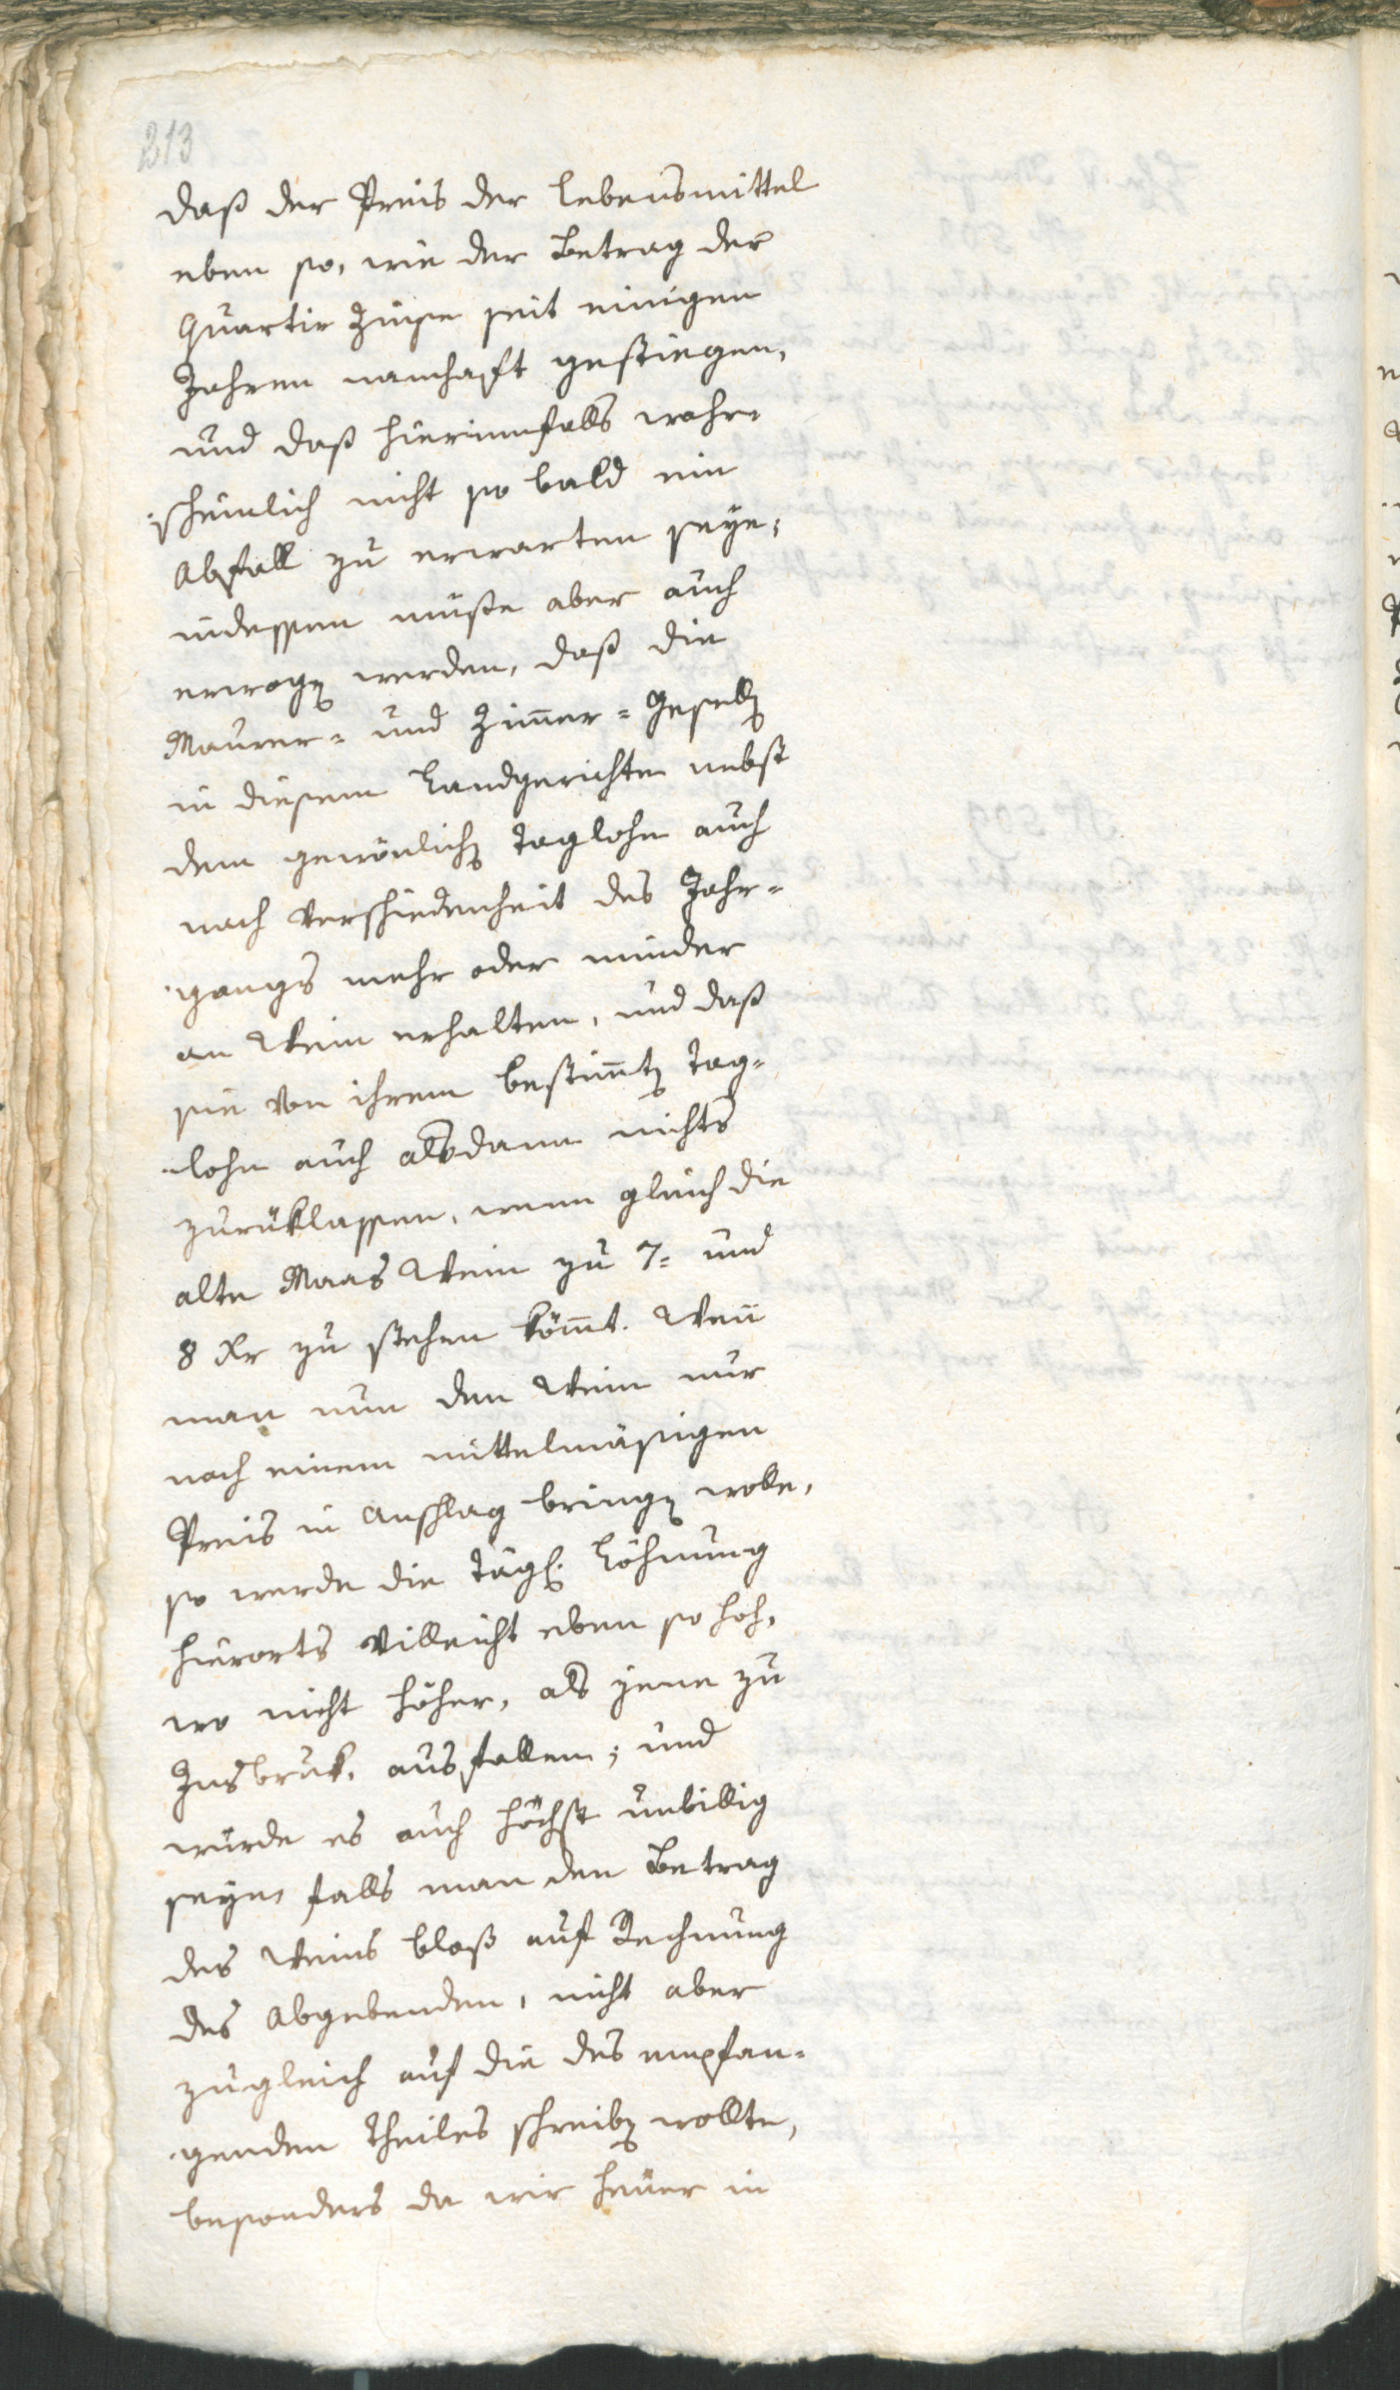 213
daß der Preis der Lebensmittel
eben so, wie der Betrag der
Quartir Zinse seit einigen
Jahren namhaft gestiegen,
und daß hierinnfalls wahr-
scheinlich nicht so bald ein
Abfall zu erwarten seye;
indessen müße aber auch
erwogen werden, daß die
Maurer- und Zimmer-Gesellen
in diesem Landgerichte nebst
dem gewönlichen Taglohn auch
nach Verschiedenheit des Jahr-
gangs mehr oder minder
an Wein erhalten, und daß
sie von ihrem bestimmten Tag-
lohn auch alsdann nichts
zurüklassen, wenn gleich die
alte Maas Wein zu 7- und
8 Xr zu stehen kömmt. Wenn
man nun den Wein nur
nach einem mittelmäsigen
Preis in Anschlag bringen wolle,
so werde die tägl. Löhnung
hierorts villeicht eben so hoh,
wo nicht höher, als jene zu
Insbruk, ausfallen; und
würde es auch höchst unbillig
seyn, falls man den Betrag
des Weins bloß auf Rechnung
des Abgebenden, nicht aber
zugleich auf die des empfan-
genden Theiles schreiben wollte,
besonders da wir heuer in